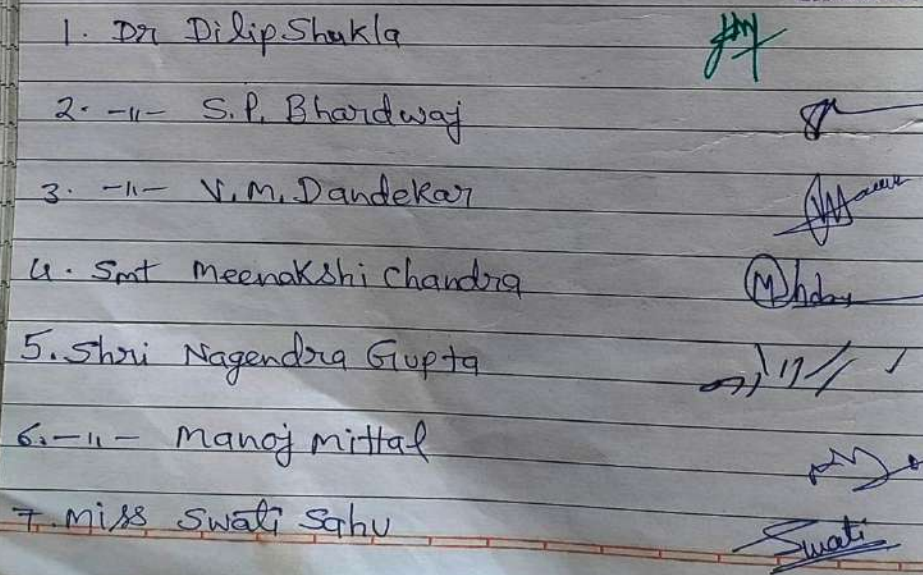 1. Dr Dilip Shukla
2. -11- S.P. Bhardwaj
3. -11- V.M. Dandekar
4. Smt Meenakshi Chandra
5. Shri Nagendra Gupta
6. -11- Manoj Mittal
7. Miss Swati Sahu Swati